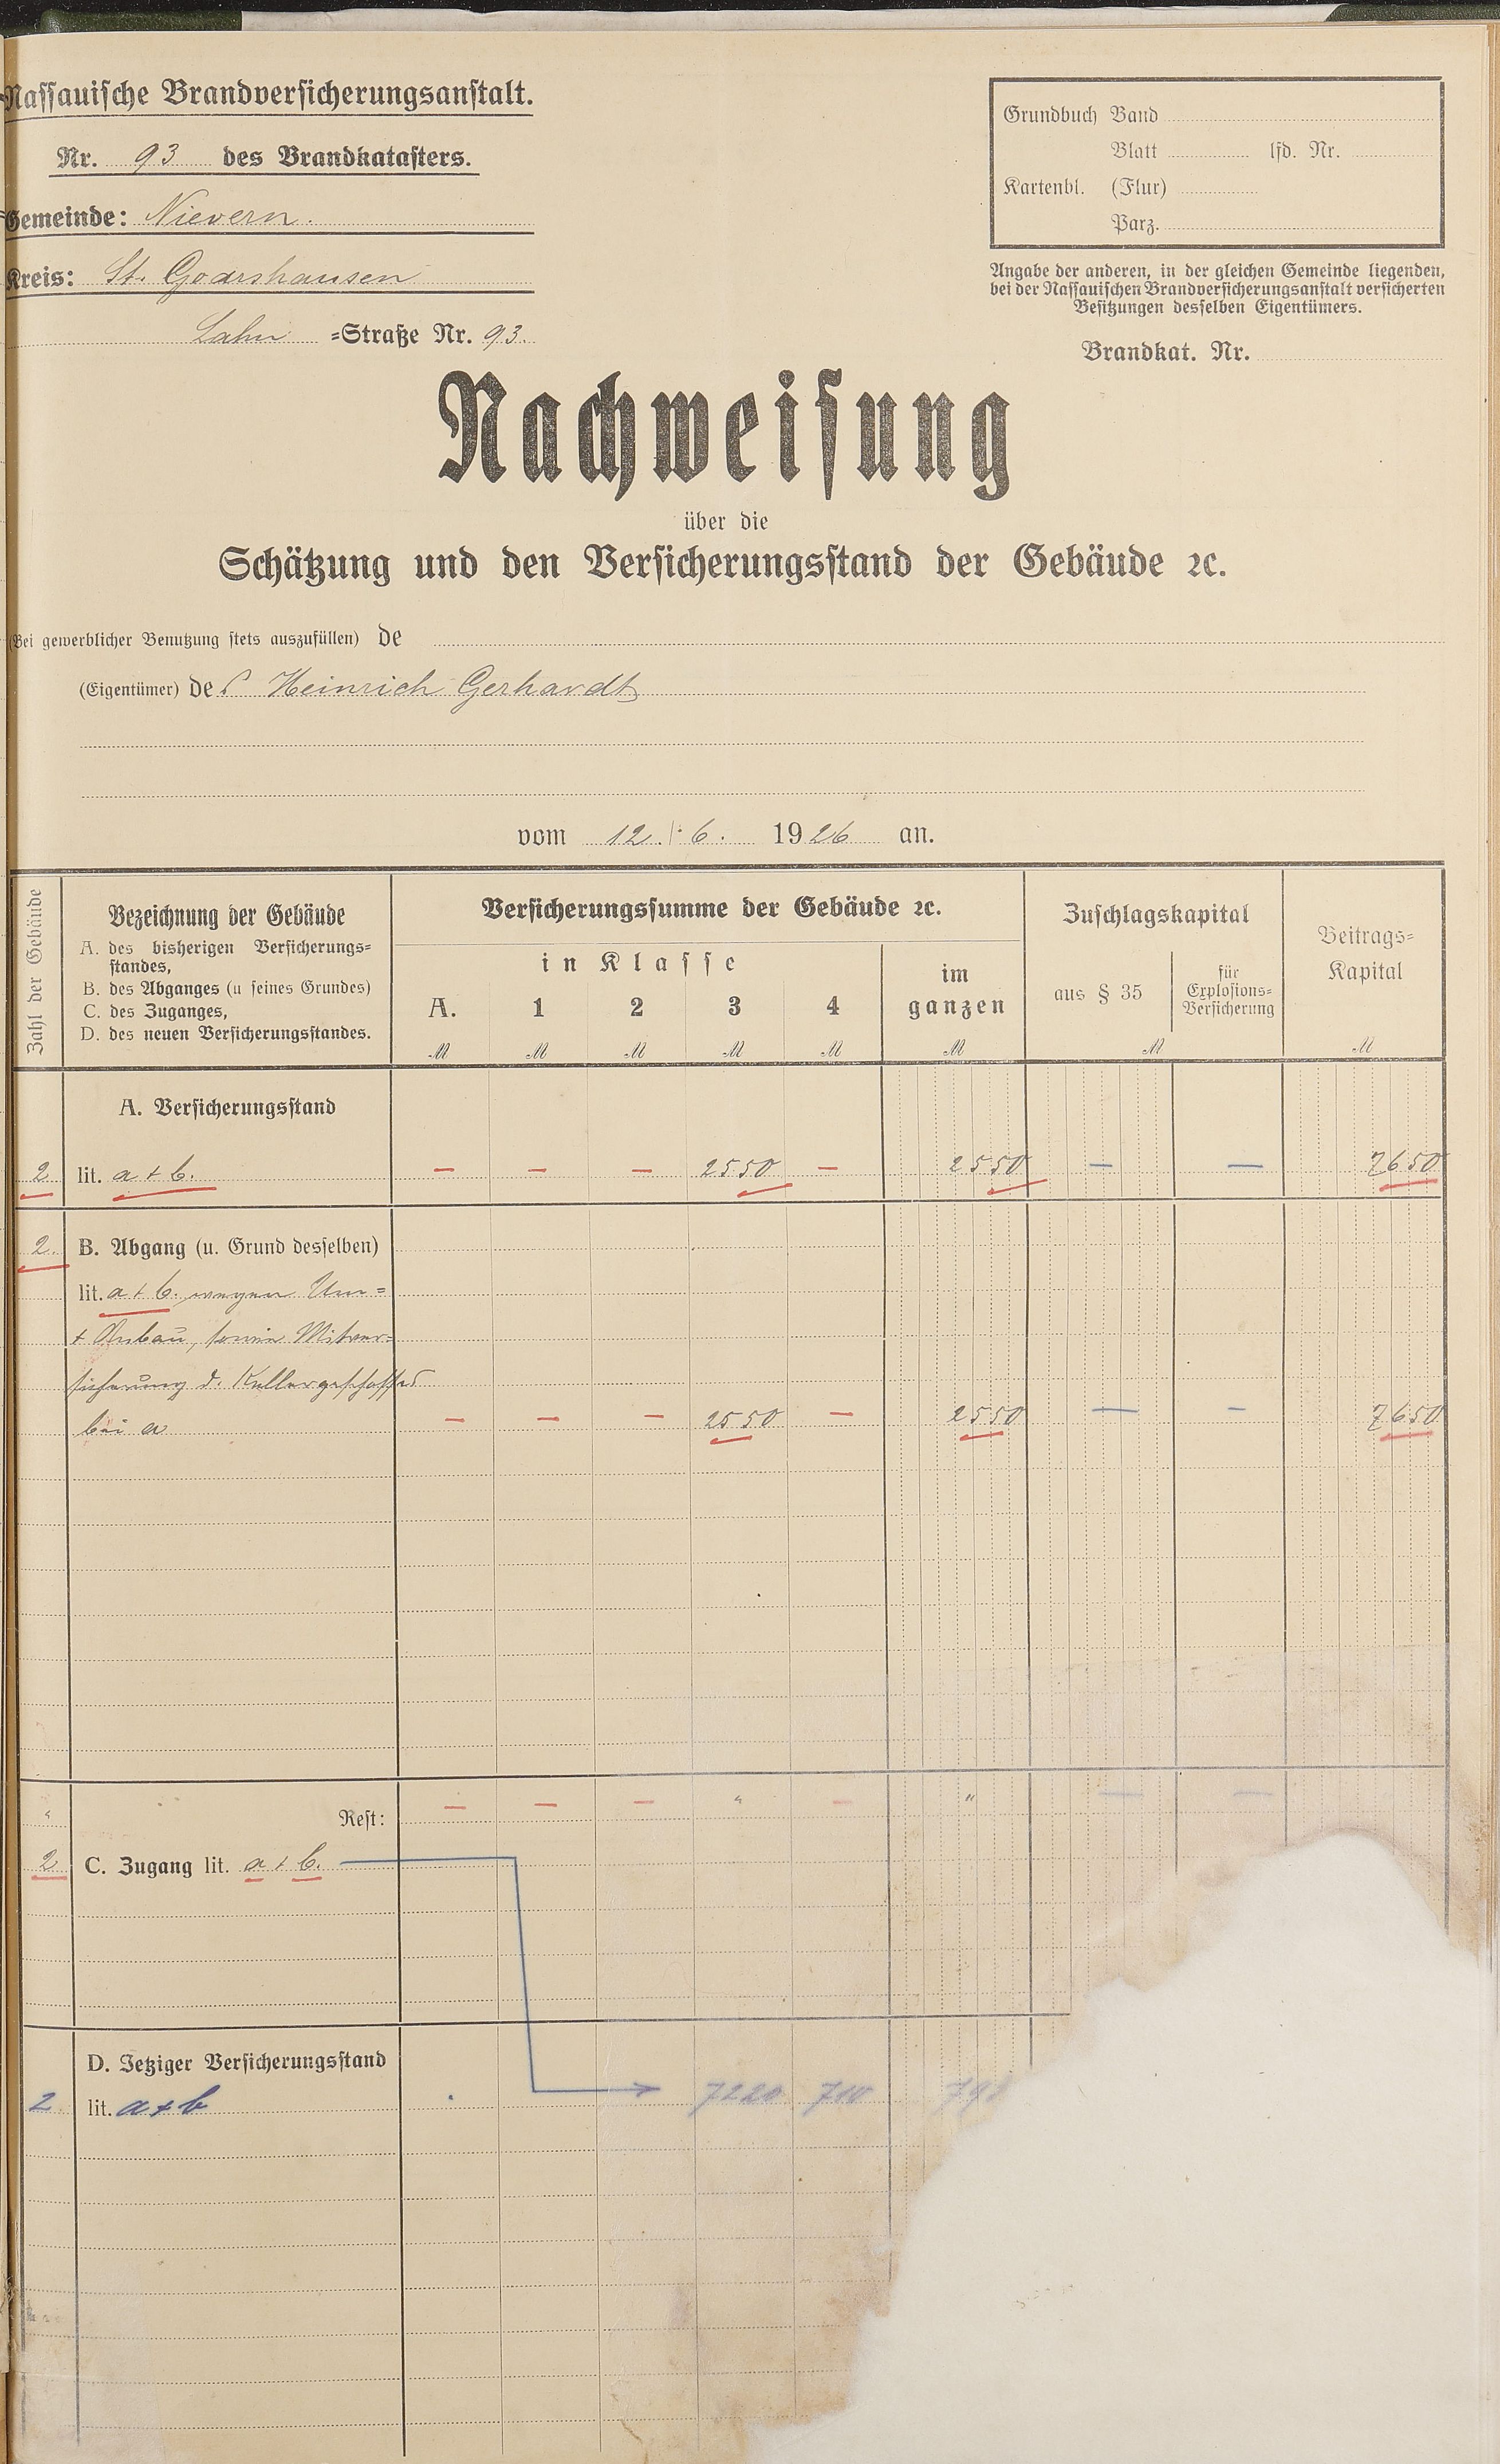 Nassauische Brandversicherungsanstalt.
Nr. 93 des Brandkatasters.
Gemeinde: Nievern.
Kreis: St. Goarshausen
Lahn =Straße Nr. 93.
Grundbuch Band
Blatt lfd. Nr.
Kartenbl. (Flur)
Parz.
Angabe der anderen, in der gleichen Gemeinde liegenden,
bei der Nassauischen Brandversicherungsanstalt versicherten
Besitzungen desselben Eigentümers.
Brandkat. Nr.
Nachweisung
über die
Schätzung und den Versicherungsstand der Gebäude ꝛc.
(Bei gewerblicher Benutzung stets auszufüllen) de
(Eigentümer) des Heinrich Gerhardt
vom 12. 6. 1926 an.
Zahl der Gebäude
Bezeichnung der Gebäude
A. des bisherigen Versicherungs=
standes,
B. des Abganges (u seines Grundes)
C. des Zuganges,
D. des neuen Versicherungsstandes.
Versicherungssumme der Gebäude ꝛc.
in Klasse
A. 1 2 3 4
im
ganzen
Zuschlagskapital
aus § 35
für
Explosions=
Versicherung
Beitrags=
Kapital
M M M M M M M M
A. Versicherungsstand
2 lit. a + b. — — — 2550 — 2550 — — 7650
2. B. Abgang (u. Grund desselben)
lit. a + b. wegen Um=
+ Anbau, sowie Mitver=
sicherung d. Kellergeschosses
bei a — — — 2550 — 2550 — — 7650
" Rest: — — — " — " — —
2 C. Zugang lit. a + b.
D. Jetziger Versicherungsstand
2 lit. a + b 7220 710 79